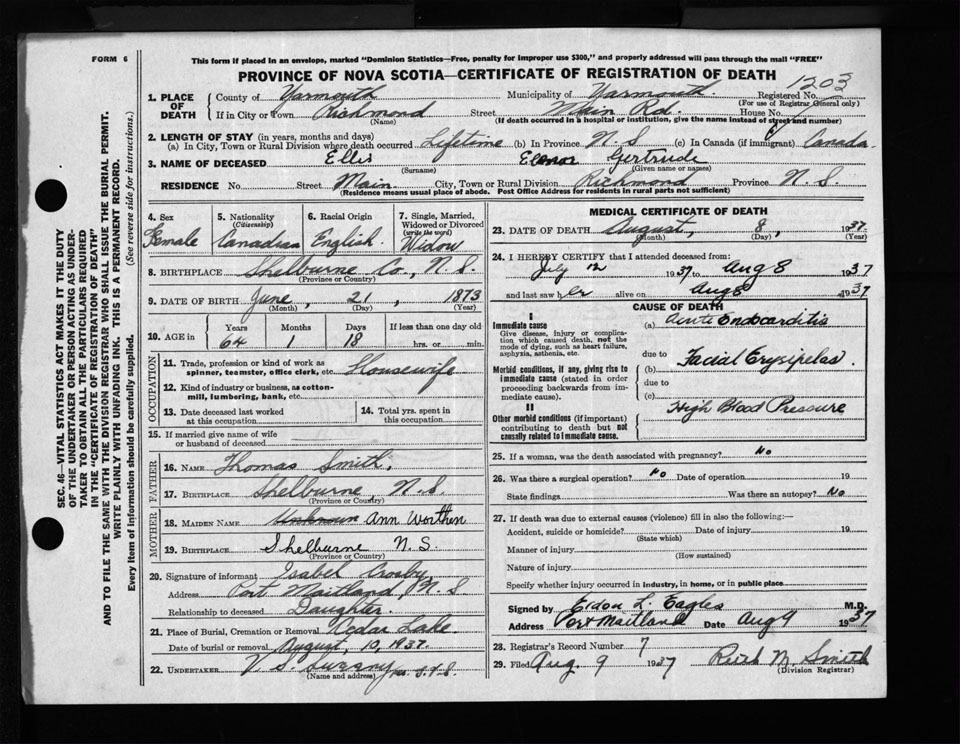 FORM 6
This form if placed in an envelope, marked "Dominion Statistics—Free, penalty for improper use $300," and properly addressed will pass through the mail "FREE"
PROVINCE OF NOVA SCOTIA—CERTIFICATE OF REGISTRATION OF DEATH
1203
1. PLACE OF DEATH { County of Yarmouth Municipality of Yarmouth Registered No.
(For use of Registrar General only)
If in City or Town Richmond Street Main Rd. House No.
(Name) (If death occurred in a hospital or institution, give the name instead of street and number)
2. LENGTH OF STAY (in years, months and days)
(a) In City, Town or Rural Division where death occurred Lifetime (b) In Province N S (c) In Canada (if immigrant) Canada.
3. NAME OF DECEASED Ellis Elenor Gertrude
(Surname) (Given name or names)
RESIDENCE No. Street Main City, Town or Rural Division Richmond Province N.S.
(Residence means usual place of abode. Post Office Address for residents in rural parts not sufficient)
4. Sex Female
5. Nationality (Citizenship) Canadian
6. Racial Origin English.
7. Single, Married, Widowed or Divorced (write the word) Widow
8. BIRTHPLACE Shelburne Co., N.S.
(Province or Country)
9. DATE OF BIRTH June, 21, 1873
(Month) (Day) (Year)
10. AGE in Years 64 Months 1 Days 18 If less than one day old hrs. or min.
OCCUPATION
11. Trade, profession or kind of work as spinner, teamster, office clerk, etc. Housewife
12. Kind of industry or business, as cotton-mill, lumbering, bank, etc.
13. Date deceased last worked at this occupation
14. Total yrs. spent in this occupation
15. If married give name of wife or husband of deceased
FATHER
16. NAME Thomas Smith,
17. BIRTHPLACE Shelburne, N.S.
(Province or Country)
MOTHER
18. MAIDEN NAME Unknown Ann Worthen
19. BIRTHPLACE Shelburne N.S.
(Province or Country)
20. Signature of informant Isabel Crosby
Address Port Maitland, N.S
Relationship to deceased Daughter.
21. Place of Burial, Cremation or Removal Cedar Lake.
Date of burial or removal August, 10, 1937.
22. UNDERTAKER V. S.
(Name and address)
MEDICAL CERTIFICATE OF DEATH
23. DATE OF DEATH August, 8, 1937.
(Month) (Day) (Year)
24. I HEREBY CERTIFY that I attended deceased from:
July 12 1937 to Aug 8 1937
and last saw her alive on Aug 8 1937
CAUSE OF DEATH
I
Immediate cause (a) Acute Endocarditis
Give disease, injury or complication which caused death, not the mode of dying, such as heart failure, asphyxia, asthenia, etc.
due to
Morbid conditions, if any, giving rise to immediate cause (stated in order proceeding backwards from immediate cause).
(b) Facial Erysipelas.
due to
(c)
II
Other morbid conditions (if important) contributing to death but not causally related to immediate cause.
High Blood Pressure
25. If a woman, was the death associated with pregnancy? No
26. Was there a surgical operation? No Date of operation 19
State findings Was there an autopsy? No
27. If death was due to external causes (violence) fill in also the following:—
Accident, suicide or homicide? Date of injury 19
(State which)
Manner of injury
(How sustained)
Nature of injury
Specify whether injury occurred in industry, in home, or in public place
Signed by Eldon L. Eagles M.D.
Address Port Maitland Date Aug 9 1937
28. Registrar's Record Number 7
29. Filed Aug. 9 1937 Ruth M. Smith
(Division Registrar)
SEC. 46—VITAL STATISTICS ACT MAKES IT THE DUTY
OF THE UNDERTAKER OR PERSON ACTING AS UNDER-
TAKER TO OBTAIN ALL THE PARTICULARS REQUIRED
IN THE "CERTIFICATE OF REGISTRATION OF DEATH"
AND TO FILE THE SAME WITH THE DIVISION REGISTRAR WHO SHALL ISSUE THE BURIAL PERMIT.
WRITE PLAINLY WITH UNFADING INK. THIS IS A PERMANENT RECORD.
Every item of information should be carefully supplied. (See reverse side for instructions.)